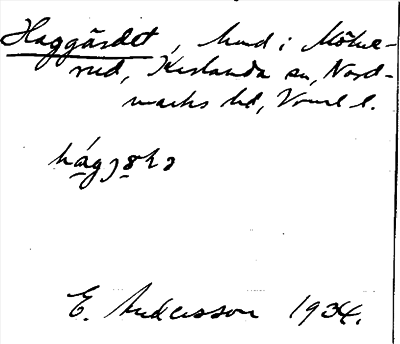 Haggärdet, hmd i Mölne-
rud, Kislanda sn, Nord-
marks hd, Vrml l.
E. Andersson 1934.